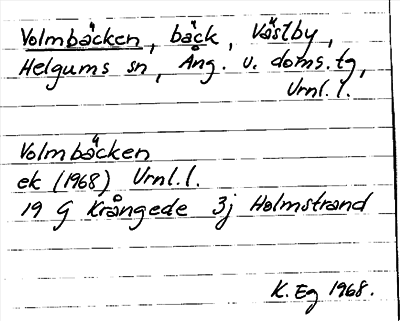 Volmbäcken, bäck, Västby,
Helgums sn, Ång. v. doms.tg,
Vrnl.l.
Volmbäcken
ek (1968) Vrnl.l.
19 G Krångede 3j Holmstrand
K. Eg 1968.